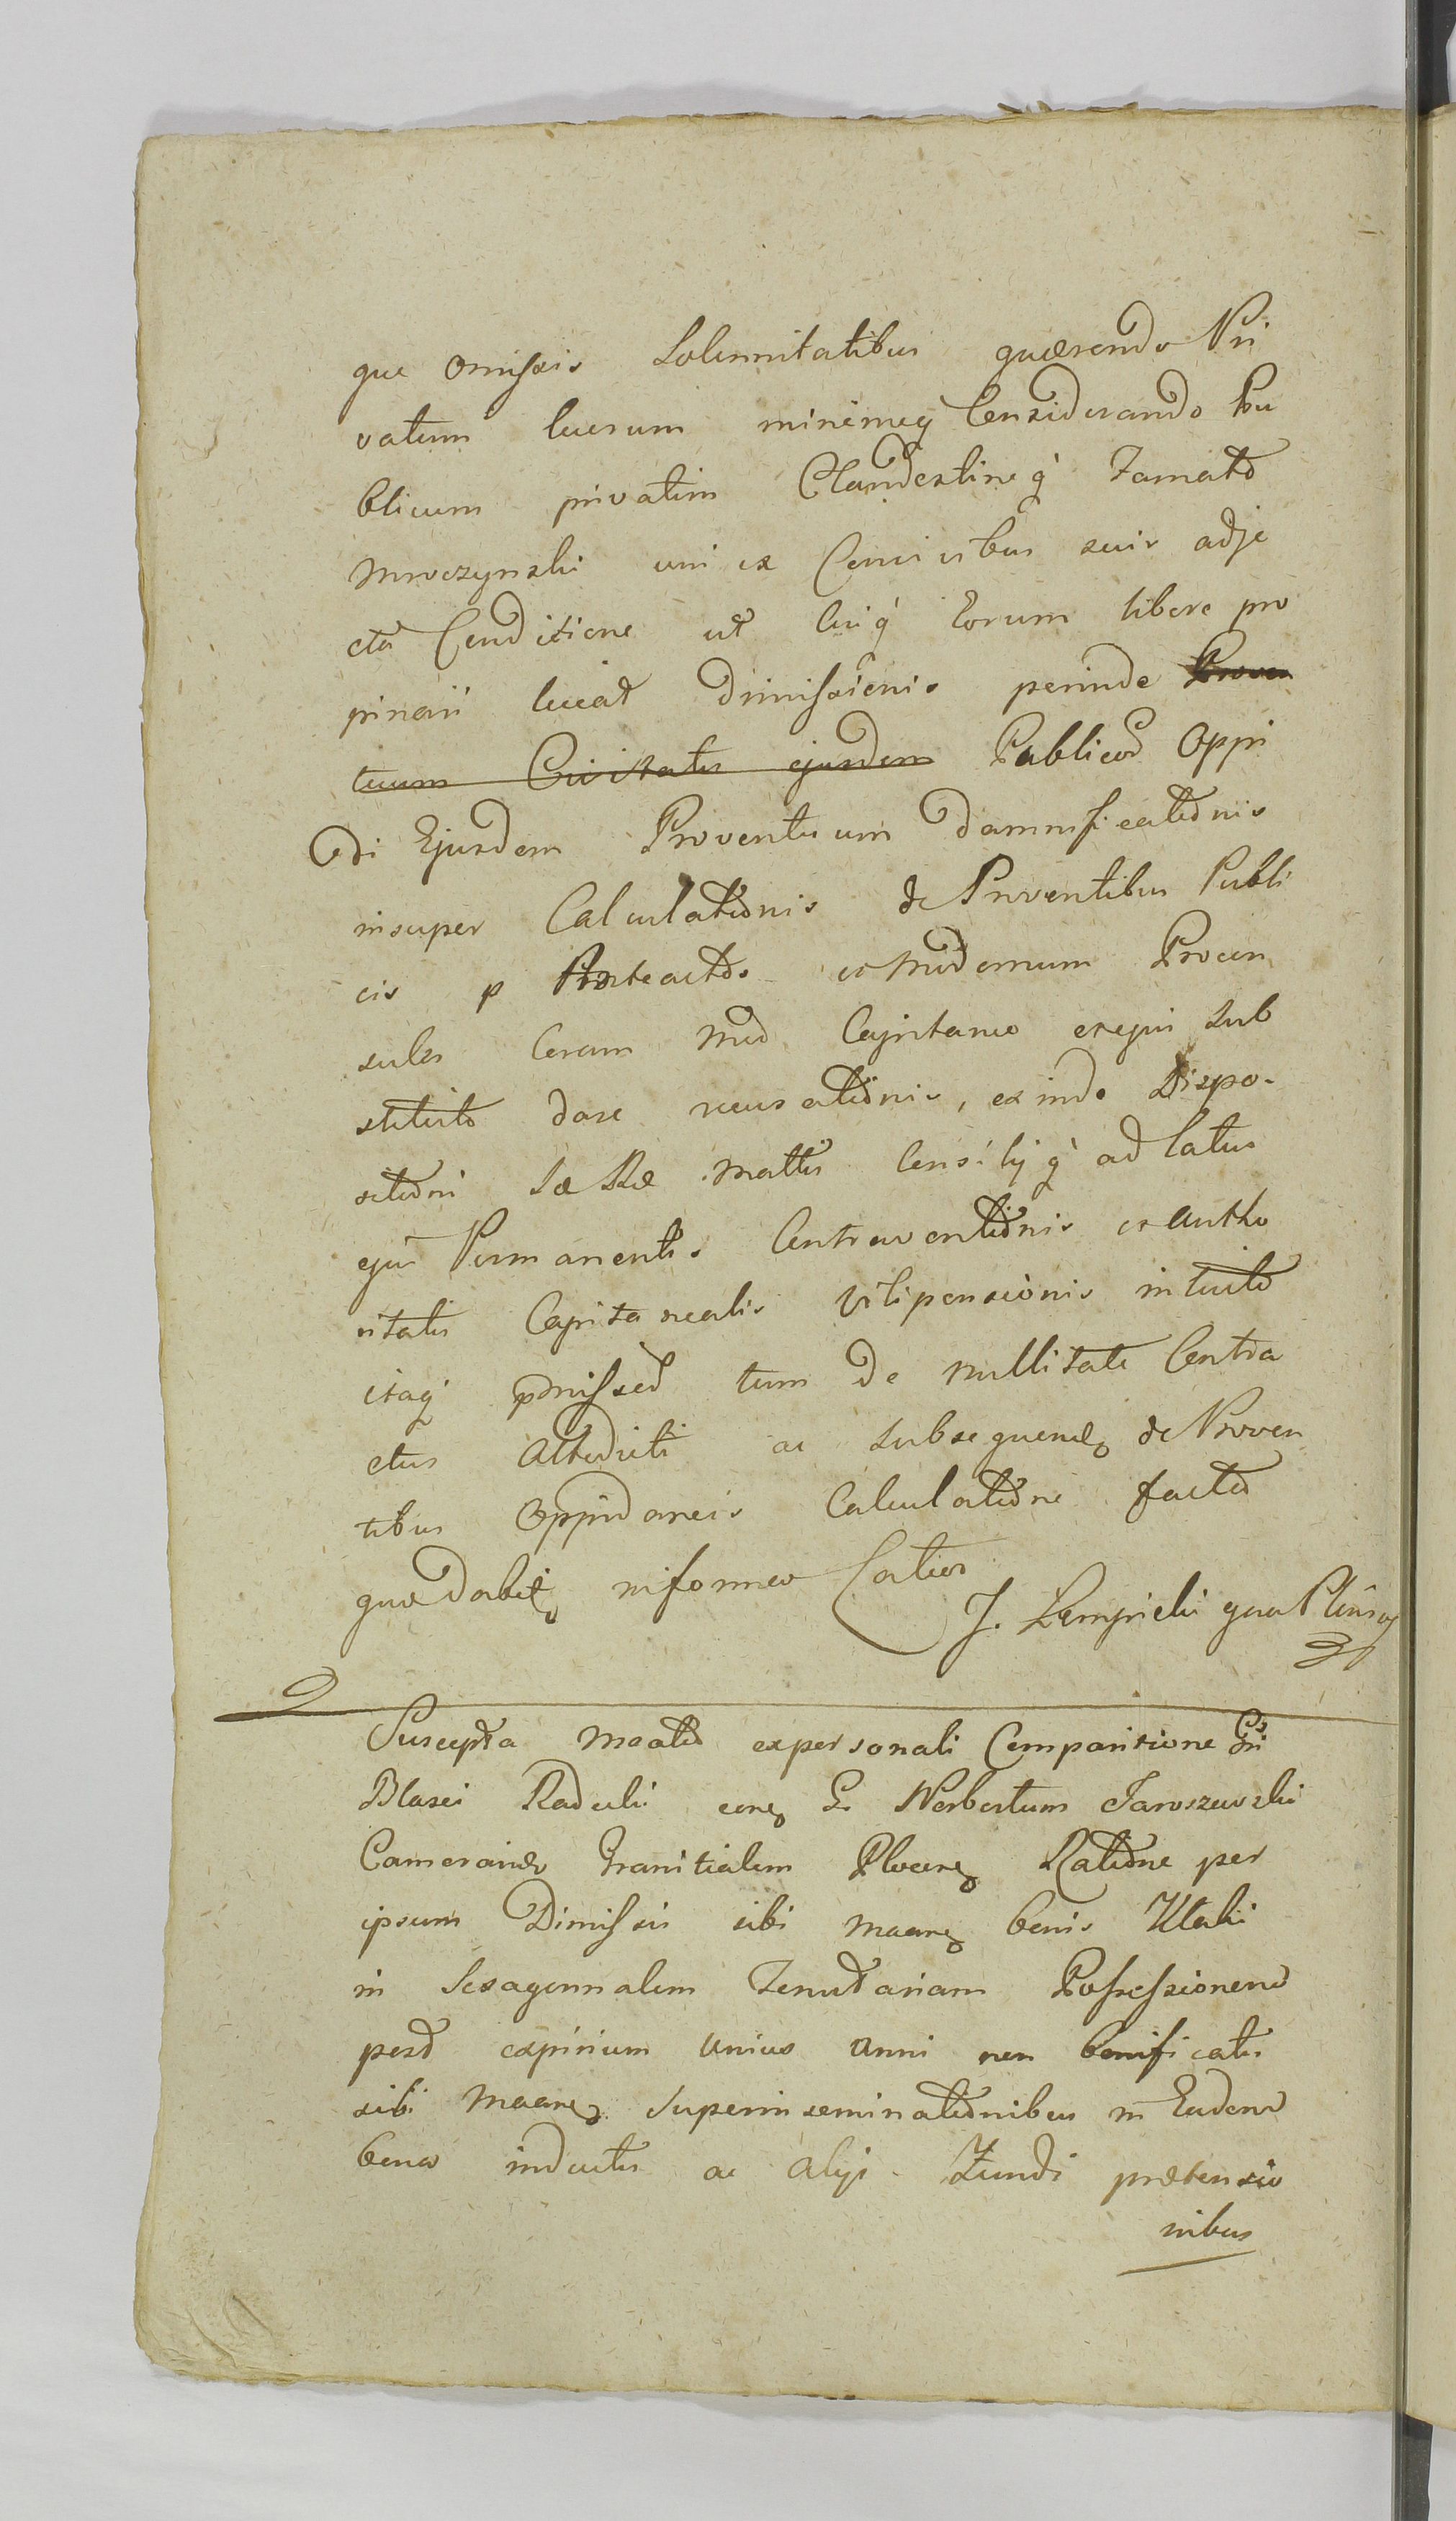 que omissis Solennitatibus quærendo Pri
vatum lucrum minimeq Considerando Pu
blicum privatim Clandestineq Famato
Mroczynski uni ex Concivibus suis adje
cta Conditione ut cuiq Eorum libere pro
pinari liceat dimissionis perinde Proven
tuum Civitatis ejusdem Publicor Oppi
di Ejusdem Proventuum damnificationis
insuper Calculationis de Proventibus Publi
cis p Anteactos et modernum Procon
sules Coram Mfco Capitaneo exequi sub
stituto dare recusationis, exinde Dispo-
sitioni Sæ Ræ Mattis Consilijq ad latus
ejus Permanentis Contraventionis et Autho
ritatis Capitanealis vilipensionis intuito
itaq pmissor tum de nullitate Contra
ctus Attducti ac subsequen de Proven
tibus Oppidaneis Calculatione facto
quæ dabit, informeo latior
J. Kempicki qua Plenip
Suscepta Moato ex personali Comparitione Gsi
Blasei Radecki cone G. Norbertum Jaroszewski
Camerarium Granitialem Plocen Ratione per
ipsum Dimissis sibi Moanti bonis Kłaki
in Sexagennalem Tenutariam Possessionem
post expirium unius anni non bonificatis
sibi Moanti Superinseminationibus in Eadem
bona inductis ac alijs fundi prætensio
nibus